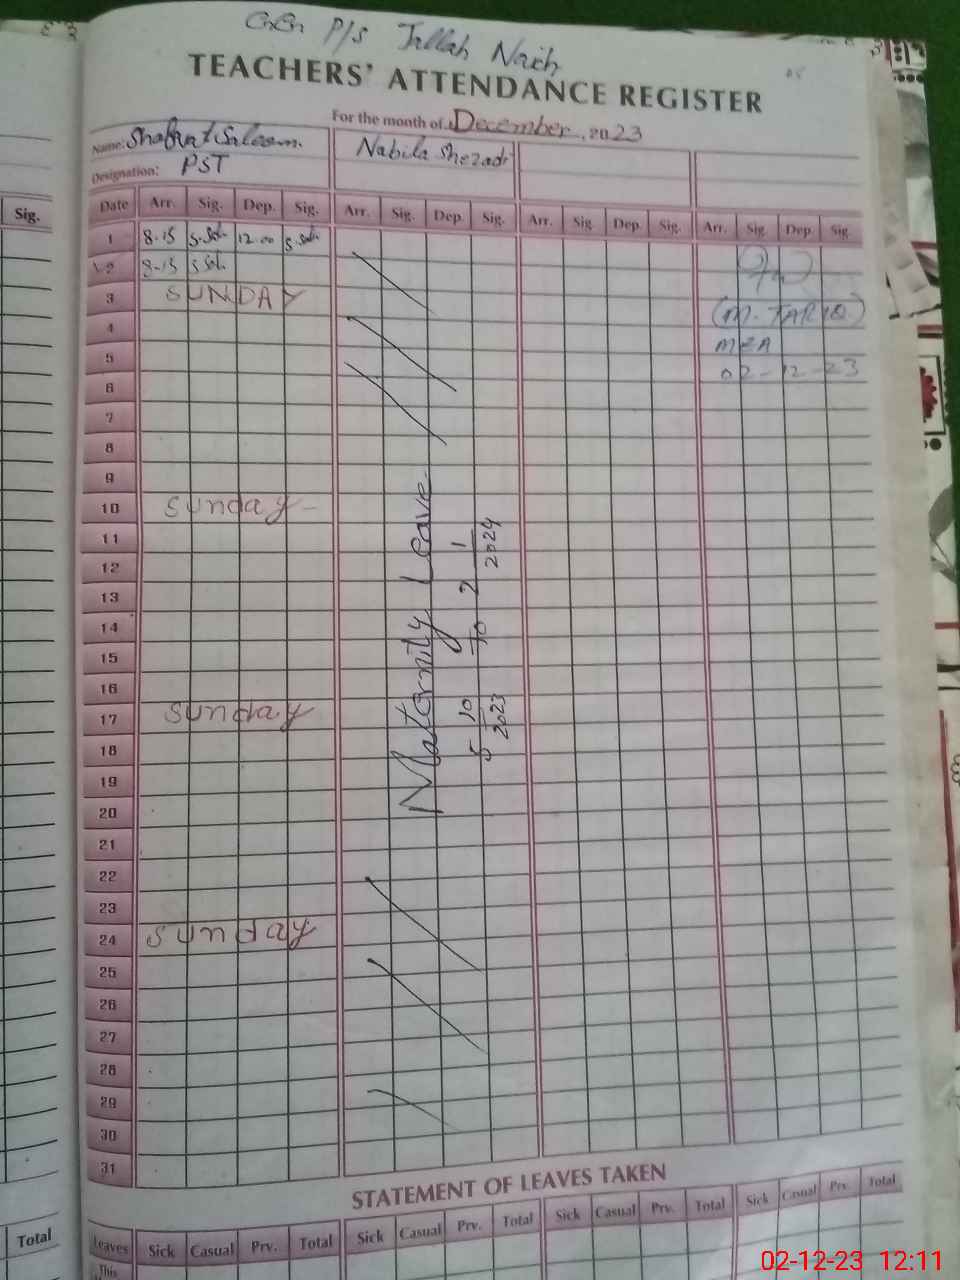 P/s Tallah Naich
TEACHERS' ATTENDANCE REGISTER
For the month of December, 2023
Name: Shafqat Saleem. Nabila Shezadi
Designation: PST
Date Arr. Sig. Dep. Sig. Arr. Sig. Dep. Sig. Arr. Sig. Dep. Sig. Arr. Sig. Dep. Sig.
Sig.
1 8-15 S.Sal. 12.00 S.Sal.
2 8-15 S Sal.
3 SUNDAY (M. TARIQ)
4 MEA
5 02-12-23
6
7
8
9
10 Sunday -
11
12
13
14
15
16
17 Sunday
18
19
20
21
22
23
24 Sunday
25
26
27
28
29
30
31
Maternity Leave
5 10 2023 To 2 1 2024
STATEMENT OF LEAVES TAKEN
Leaves Sick Casual Prv. Total Sick Casual Prv. Total Sick Casual Prv. Total Sick Casual Prv. Total
Total
This
02-12-23 12:11